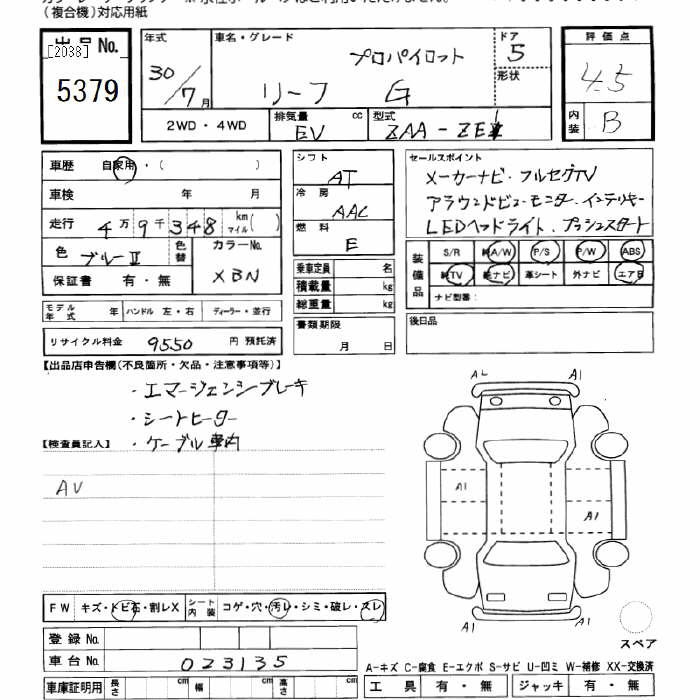 （複合機）対応用紙
出品No.
[2038]
5379
年式
30/7月
車名・グレード
プロパイロット
リーフ G
ドア
5
形状
評価点
4.5
内装
B
2WD・4WD
排気量 cc
EV
型式
ZAA-ZE1
車歴 自家用・（ ）
車検 年 月
走行 4万9千348 km マイル( )
色 ブルーII
色替
カラーNo.
XBN
保証書 有・無
シフト
AT
冷房
AAC
燃料
E
乗車定員 名
積載量 kg
総重量 kg
書類期限
月 日
セールスポイント
メーカーナビ・フルセグTV
アラウンドビューモニター インテリキー
LEDヘッドライト．プッシュスタート
装備品
S/R 純A/W P/S P/W ABS
純TV 純ナビ 革シート 外ナビ エアB
ナビ型番：
後日品
モデル年式 年 ハンドル 左・右 ディーラー・並行
リサイクル料金 9550 円 預託済
【出品店申告欄(不良箇所・欠品・注意事項等)】
・エマージェンシーブレーキ
・シートヒーター
・ケーブル車内
【検査員記入】
AV
A1
A1
A1
A1
A1
FW キズ・トビ石・割レX
シート内装 コゲ・穴・汚レ・シミ・破レ・スレ
スペア
登録No.
車台No. 023135
A-キズ C-腐食 E-エクボ S-サビ U-凹ミ W-補修 XX-交換済
車庫証明用 長さ cm 幅 cm 高さ cm
工具 有・無 ジャッキ 有・無